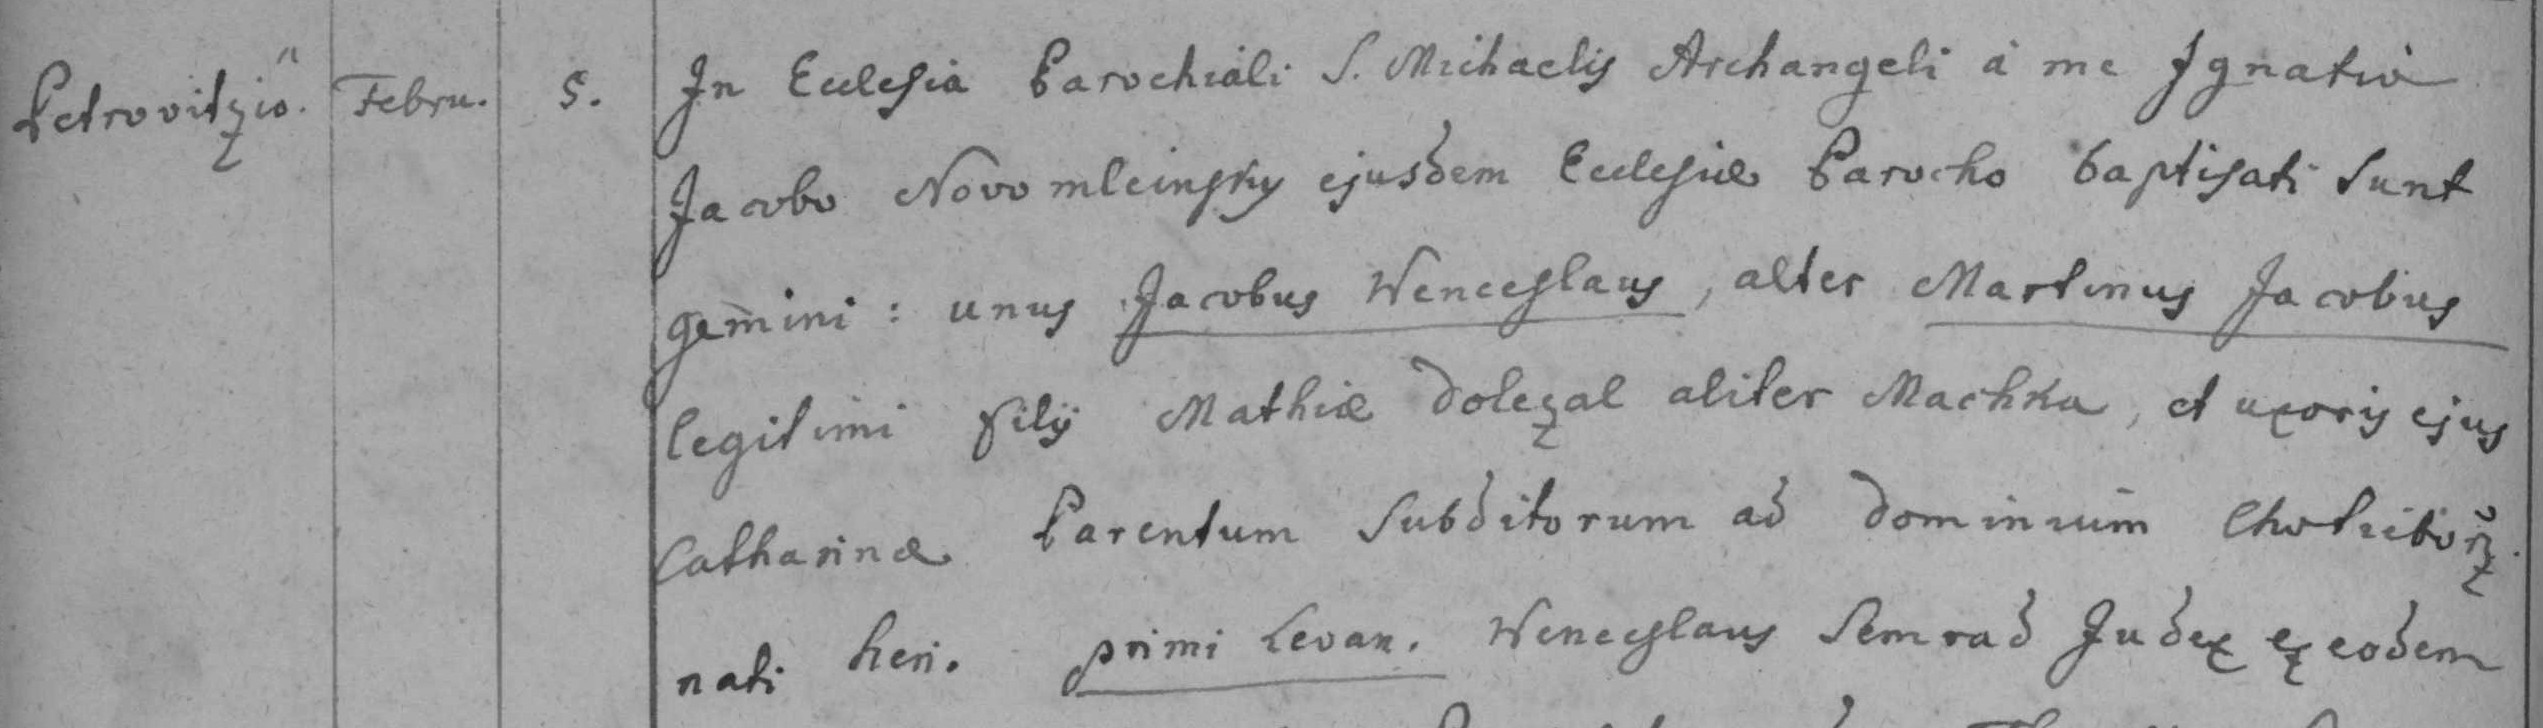 Petrovitzio. Febru. 5. In Ecclesia Parochiali S. Michaelis Archangeli à me Ignatio
Jacobo Novomleinsky ejusdem Ecclesiæ Parocho baptisati sunt
gemini : unus Jacobus Wenceslaus, alter Martinus Jacobus
legitimi filij Mathiæ Dolezal aliter Machka, et uxoris ejus
Catharinæ Parentum subditorum ad Dominium Chotiborz.
nati heri. primi Levan. Wenceslaus Semrad Judex ex eodem